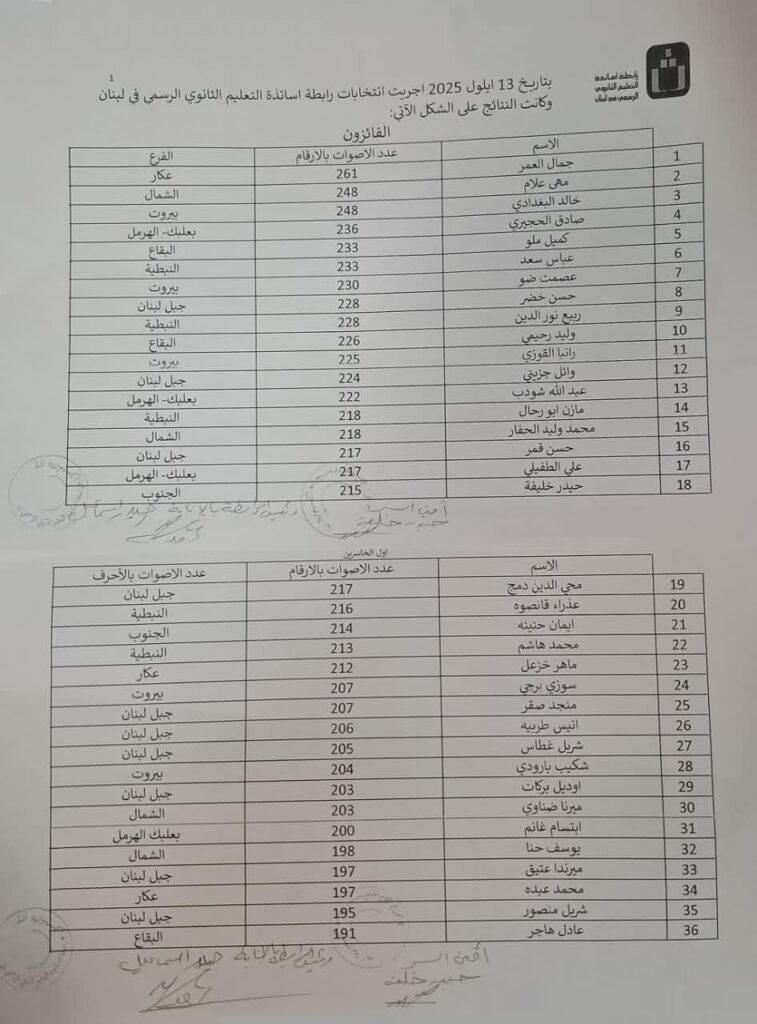 رابطة اساتذة
التعليم الثانوي
الرسمي في لبنان
1
بتاريخ 13 ايلول 2025 اجريت انتخابات رابطة اساتذة التعليم الثانوي الرسمي في لبنان
وكانت النتائج على الشكل الآتي:
الفائزون
الاسم عدد الاصوات بالارقام الفرع
1 جمال العمر 261 عكار
2 مهى علام 248 الشمال
3 خالد البغدادي 248 بيروت
4 صادق الحجيري 236 بعلبك- الهرمل
5 كميل ملو 233 البقاع
6 عباس سعد 233 النبطية
7 عصمت ضو 230 بيروت
8 حسن خضر 228 جبل لبنان
9 ربيع نور الدين 228 النبطية
10 وليد رحيمي 226 البقاع
11 رانيا القوزي 225 بيروت
12 وائل جزيني 224 جبل لبنان
13 عبد الله شودب 222 بعلبك- الهرمل
14 مازن ابو رحال 218 النبطية
15 محمد وليد الحفار 218 الشمال
16 حسن قمر 217 جبل لبنان
17 علي الطفيلي 217 بعلبك- الهرمل
18 حيدر خليفة 215 الجنوب
أمين السر رئيس الرابطة بالانابة
اول الخاسرين
الاسم عدد الاصوات بالارقام عدد الاصوات بالأحرف
19 محي الدين دمج 217 جبل لبنان
20 عذراء قانصوه 216 النبطية
21 ايمان حنينه 214 الجنوب
22 محمد هاشم 213 النبطية
23 ماهر خزعل 212 عكار
24 سوزي برجي 207 بيروت
25 منجد صقر 207 جبل لبنان
26 انيس طربيه 206 جبل لبنان
27 شربل غطاس 205 جبل لبنان
28 شكيب بارودي 204 بيروت
29 اوديل بركات 203 جبل لبنان
30 ميرنا ضناوي 203 الشمال
31 ابتسام غانم 200 بعلبك الهرمل
32 يوسف حنا 198 الشمال
33 ميرندا عتيق 197 جبل لبنان
34 محمد عبده 197 عكار
35 شربل منصور 195 جبل لبنان
36 عادل هاجر 191 البقاع
أمين السر رئيس الرابطة بالانابة